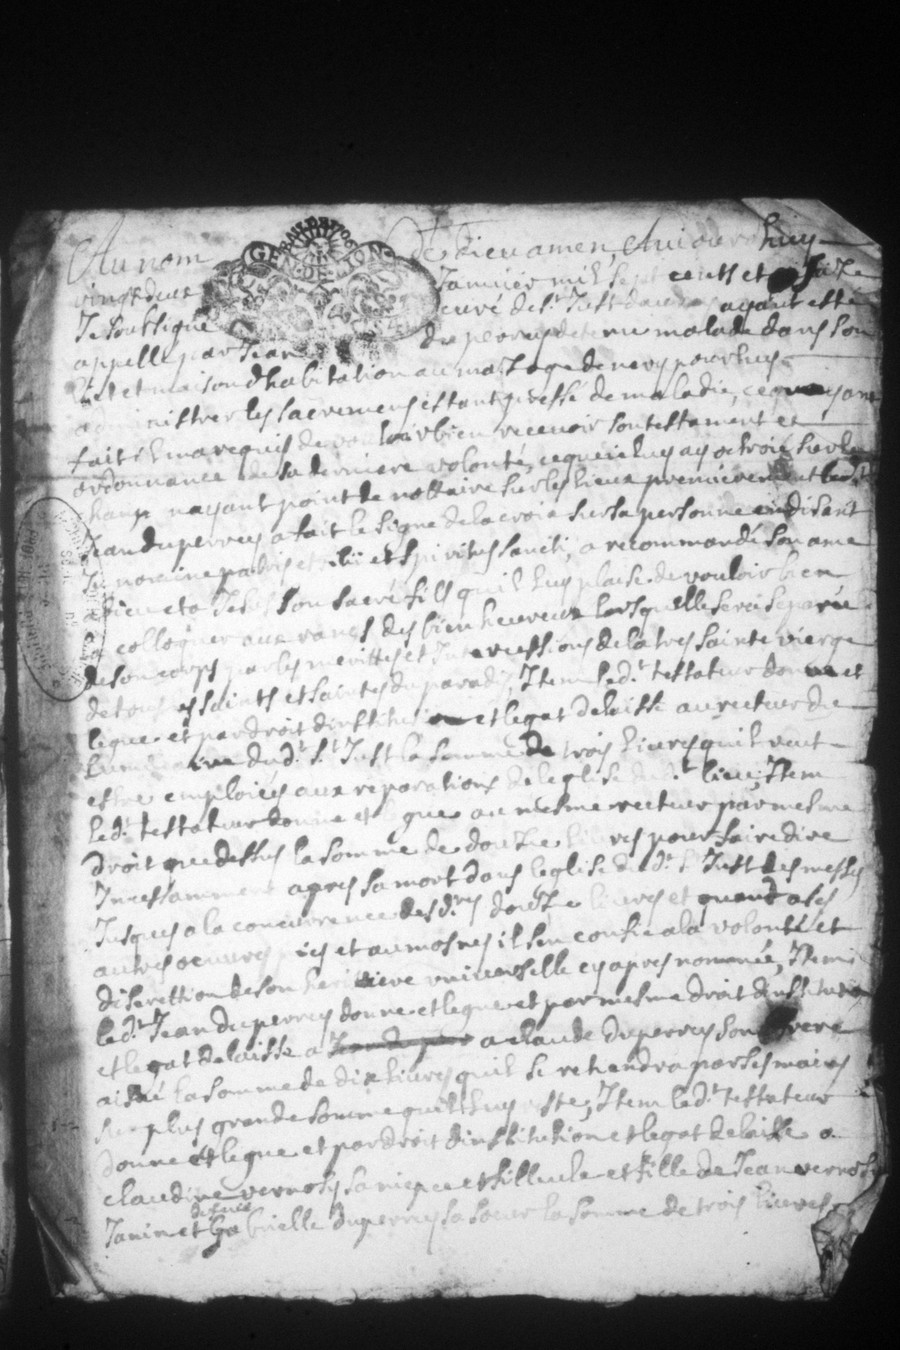 Au nom de dieu amen, Aujourdhuy
vingt deux Janvier mil sept cents et seize
Je soubsigné curé de st Just ayant esté
appellé par Jean duperrey detenu malade dans son
lict et maison d'habitation au mas pour luy
administrer les sacremens estant pressé de maladie, ce
fait il m'a requis de vouloir bien recevoir son testament et
ordonnance de sa derniere volonté, ce que je luy ay octroié sur le
champ n'ayant point de nottaire sur les lieux premierement led.t
Jean duperrey a fait le signe de la croix sur sa personne en disant
In nomine patris et filii et spiritus sancti, a recommandé son ame
a dieu et a Jesus son sacré fils qu'il luy plaise de vouloir bien
colloquer aux rangs des bien heureux lorsqu'elle sera separée
de son corps par les merittes et Intercessions de la tres sainte vierge
de tous les saints et saintes du paradis, Item led.t testateur donne et
legue et par droit d'institution et legat delaisse au recteur du
luminaire dud.t s.t Just la somme de trois livres qu'il veut
estre emploiées aux reparations de l'eglise dud.t lieu, Item
led.t testateur donne et legue au mesme recteur par mesme
droit que dessus la somme de douze livres pour faire dire
Incessamment apres sa mort dans l'eglise dud.t s.t Just des messes
Jusques a la concurrence desd.tes douze livres et quand a ses
autres oeuvres pies et aumosnes il s'en confie a la volonté et
discrettion de son heritiere universelle cy apres nommée, Item
led.t Jean duperrey donne et legue et par mesme droit d'institution
et legat delaisse a a claude duperrey son frere
aisné la somme de dix livres qu'il se retiendra par ses mains
sur plus grande somme qu'il luy reste, Item led.t testateur
donne et legue et par droit d'institution et legat delaisse a
claudine vernosy sa niepce et filleule et fille de Jean vernosy
Janin et Gabrielle duperrey sa soeur la somme de trois livres